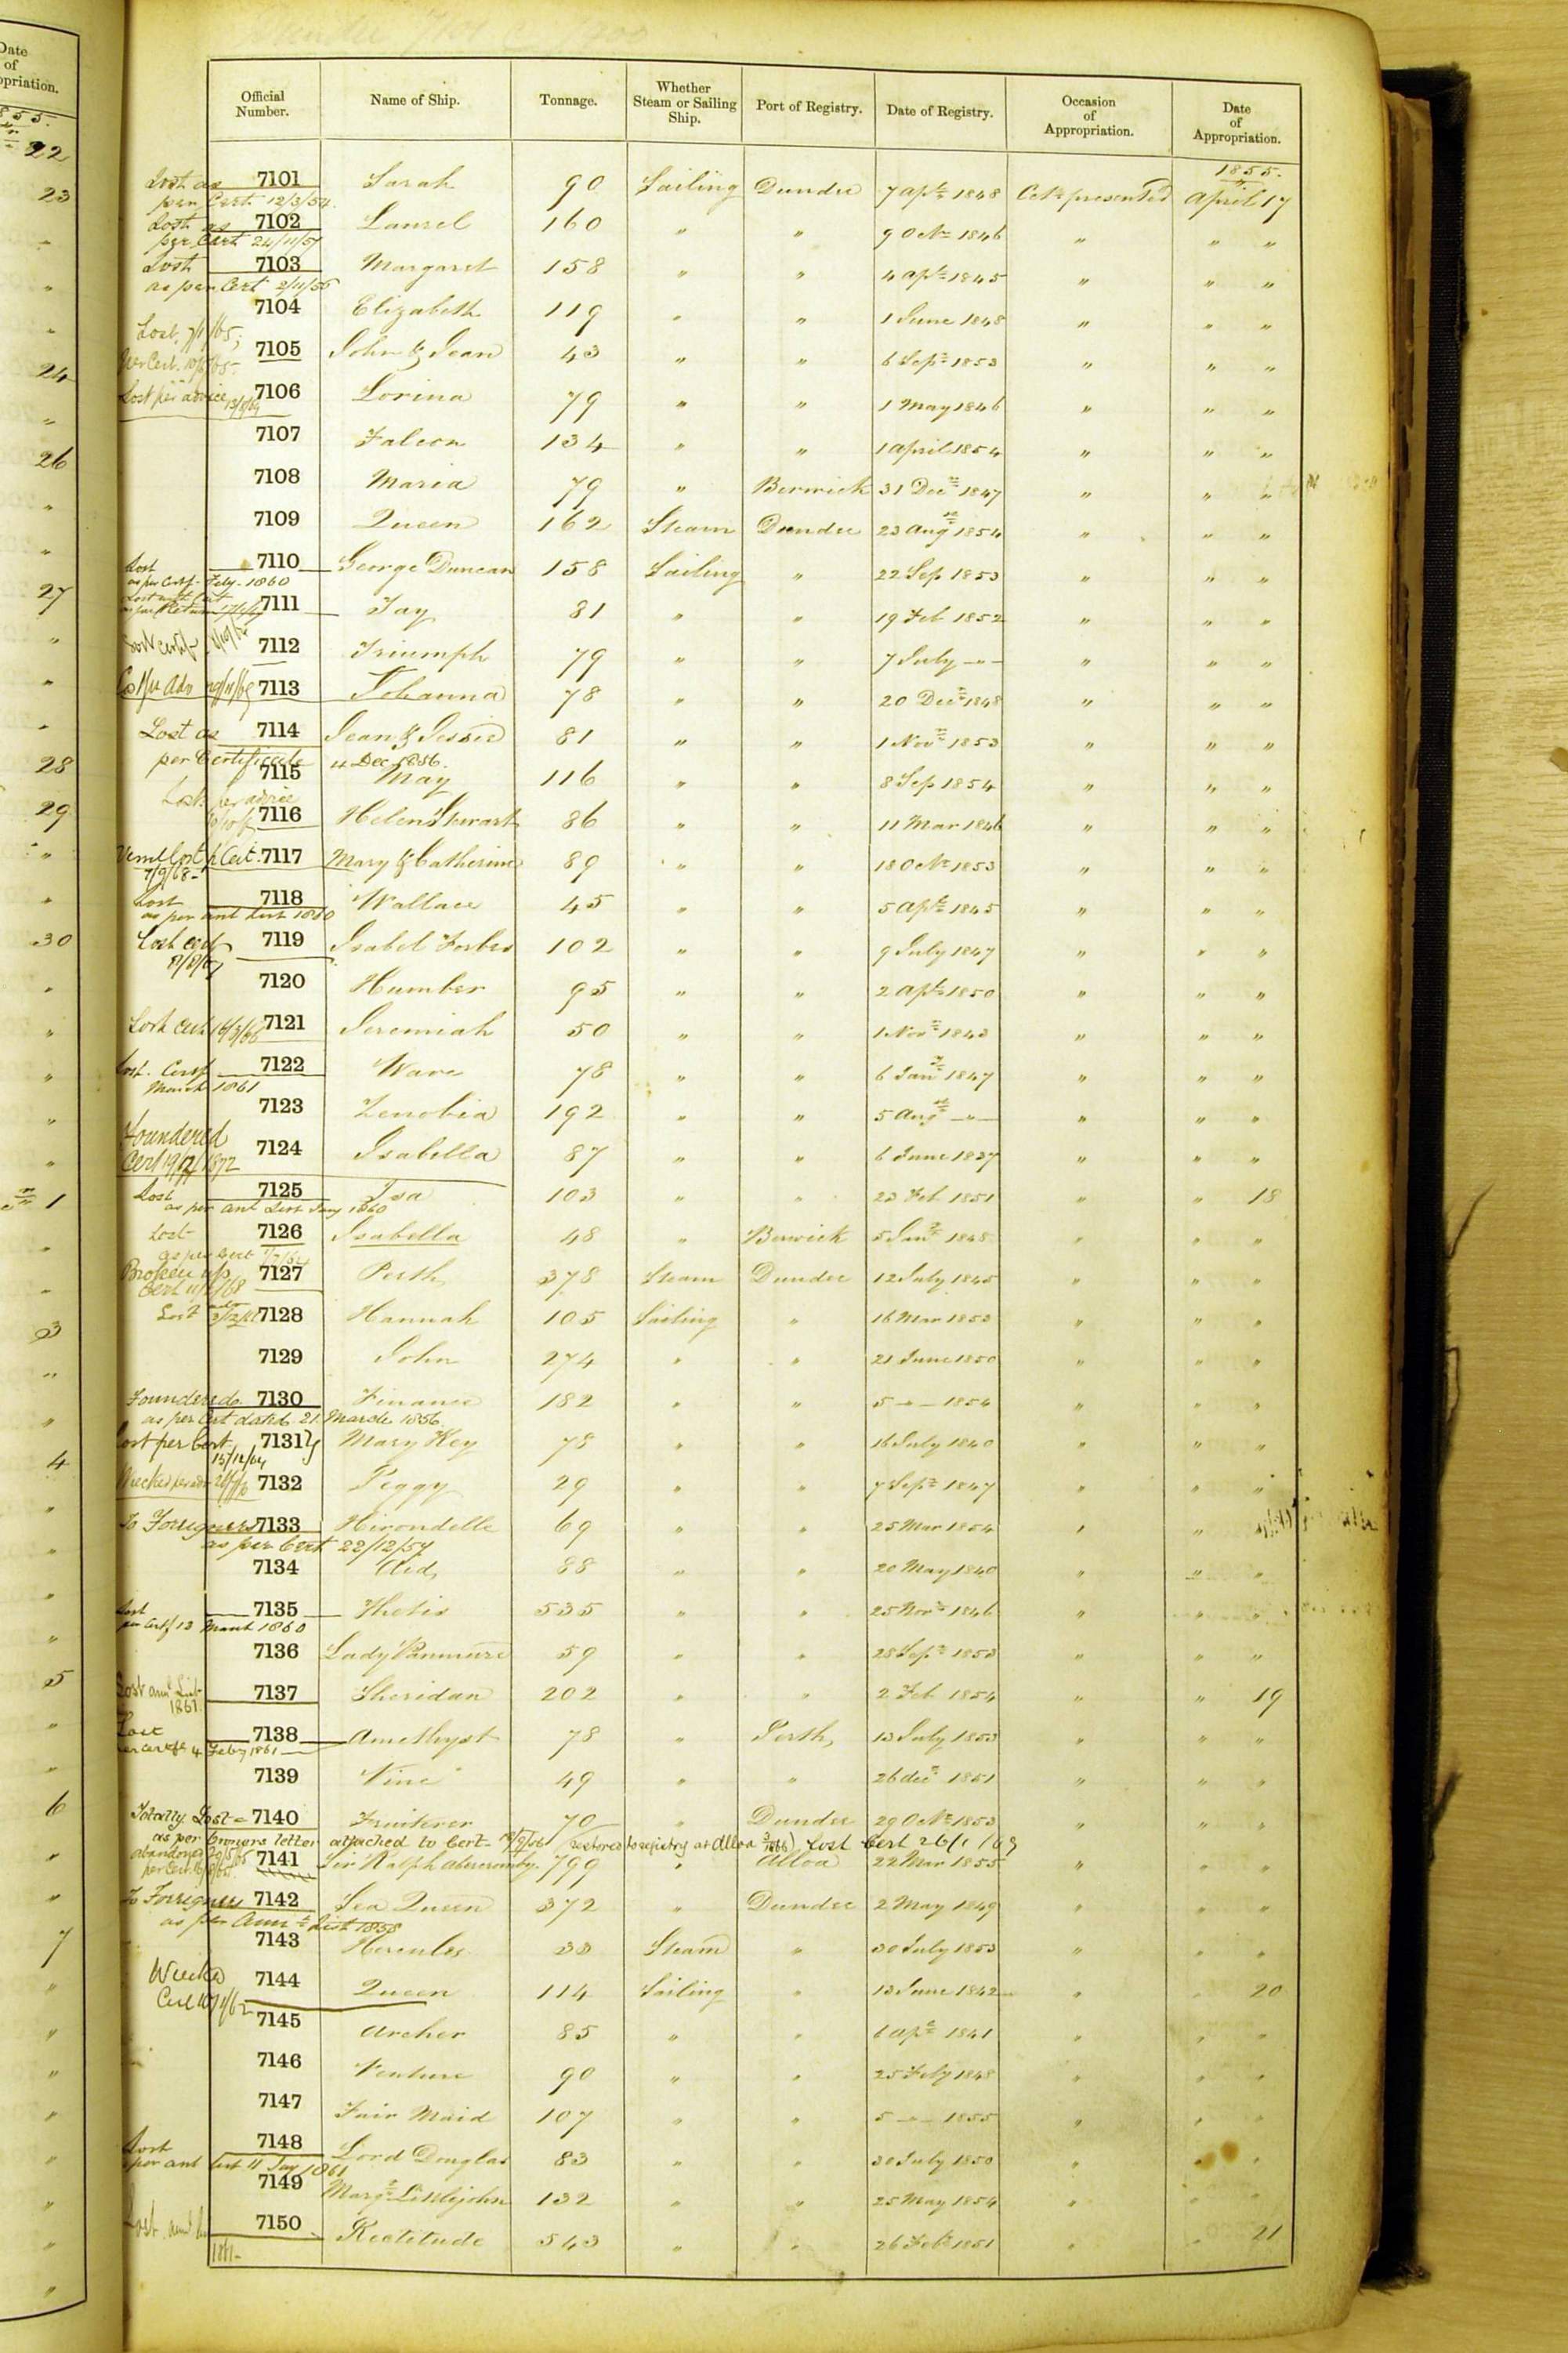 Date
of
opriation.
22
23
24
26
27
28
29
30
1
3
4
5
6
7
Official Number. Name of Ship. Tonnage. Whether Steam or Sailing Ship. Port of Registry. Date of Registry. Occasion of Appropriation. Date of Appropriation.
1855.
Lost as 7101 Sarah 90 Sailing Dundee 7 Apl 1848 Cete presented April 17
per Cert. 12/3/57.
Lost as 7102 Laurel 160 " " 9 Oct 1846 " " "
per Cert 24/11/57
Lost 7103 Margaret 158 " " 4 Apl 1845 " " "
as per Cert 2/11/55
7104 Elizabeth 119 " " 1 June 1848 " " "
Lost 7/1/65;
7105 John & Jean 43 " " 6 Sep 1853 " " "
per Cert.
Lost per advice 7106 Lorina 79 " " 1 May 1846 " " "
7107 Falcon 134 " " 1 April 1854 " " "
7108 Maria 79 " Berwick 31 Dec 1847 " " "
7109 Queen 162 Steam Dundee 23 Aug 1854 " " "
Lost 7110 George Duncan 158 Sailing " 22 Sep 1853 " " "
as per Certf. Feby. 1860
7111 Tay 81 " " 19 Feb 1852 " " "
Lost certif 7112 Triumph 79 " " 7 July —"— " " "
7113 Johanna 78 " " 20 Dec 1848 " " "
Lost as 7114 Jean & Jessie 81 " " 1 Nov 1853 " " "
per Certificate 4 Dec 1856.
7115 May 116 " " 8 Sep 1854 " " "
Lost per advice
7116 Helen Stewart 86 " " 11 Mar 1846 " " "
Vessel Lost p Cert. 7117 Mary & Catherine 89 " " 18 Oct 1853 " " "
7/9/68-
Lost 7118 Wallace 45 " " 5 Apl 1845 " " "
as per anl List 1860
Lost cert 7119 Isabel Forbes 102 " " 9 July 1847 " " "
7120 Humber 95 " " 2 Apl 1850 " " "
Lost cert 16/3/66 7121 Jeremiah 50 " " 1 Nov 1843 " " "
Lost. Certf 7122 Wave 78 " " 6 Jan 1847 " " "
March 1861
7123 Zenobia 192 " " 5 Aug —"— " " "
Foundered
7124 Isabella 87 " " 6 June 1837 " " "
Cert 19/12/1872
Lost 7125 Isa 103 " " 23 Feb 1851 " " 18
as per anl List Jany 1860
Lost 7126 Isabella 48 " Berwick 5 Jan 1848 " " "
as per Cert
Broken up 7127 Perth 378 Steam Dundee 12 July 1845 " " "
Lost 7128 Hannah 105 Sailing " 16 Mar 1853 " " "
7129 John 274 " " 21 June 1850 " " "
Foundered 7130 Finance 182 " " 5 —"— 1854 " " "
as per Cert dated 21 March 1856.
Lost per Cert 7131 Mary Key 78 " " 16 July 1840 " " "
15/12/64
7132 Peggy 29 " " 7 Sep 1847 " " "
To Foreigners 7133 Hirondelle 69 " " 25 Mar 1854 " " "
as per Cert 22/12/57
7134 Aid 88 " " 20 May 1840 " " "
Lost 7135 Thetis 535 " " 25 Nov 1846 " " "
per Certf 13 March 1860
7136 Lady Panmure 59 " " 28 Sep 1853 " " "
Lost anl List 7137 Sheridan 202 " " 2 Feb 1854 " " 19
1861.
Lost 7138 Amethyst 78 " Perth 13 July 1853 " " "
per Certf 4 Feby 1861
7139 Vine 49 " " 26 dec 1851 " " "
Totally Lost 7140 Fruiterer 70 " Dundee 29 Oct 1853 " " "
as per Owners letter attached to Cert (restored to registry at Alloa ) Lost Cert 26/1/69
abandoned 7141 Sir Ralph Abercromby. 799 " Alloa 22 Mar 1855 " " "
To Foreigners 7142 Sea Queen 372 " Dundee 2 May 1849 " " "
as per Annl List 1858
7143 Hercules 33 Steam " 30 July 1853 " " "
Wrecked 7144 Queen 114 Sailing " 13 June 1842 " " 20
7145 Archer 85 " " 6 Apl 1841 " " "
7146 Venture 90 " " 25 Feby 1848 " " "
7147 Fair Maid 107 " " 5 —"— 1855 " " "
Lost 7148 Lord Douglas 83 " " 30 July 1850 " " "
per anl List 11 Jay 1861
7149 Margt Littlejohn 132 " " 25 May 1854 " " "
7150 Rectitude 543 " " 26 Feb 1851 " " 21
1861-